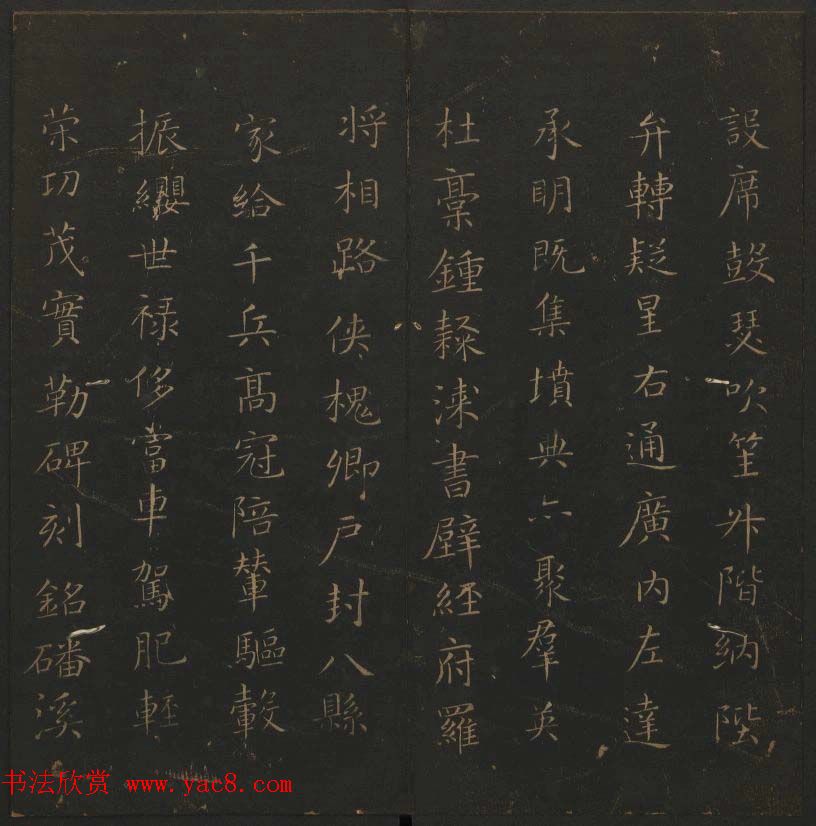 設席鼓瑟吹笙升階納陛
弁轉疑星右通廣內左達
承明既集墳典亦聚羣英
杜稾鍾隸漆書壁經府羅
將相路俠槐卿戶封八縣
家給千兵高冠陪輦驅轂
振纓世祿侈富車駕肥輕
策功茂實勒碑刻銘磻溪
书法欣赏 www.yac8.com